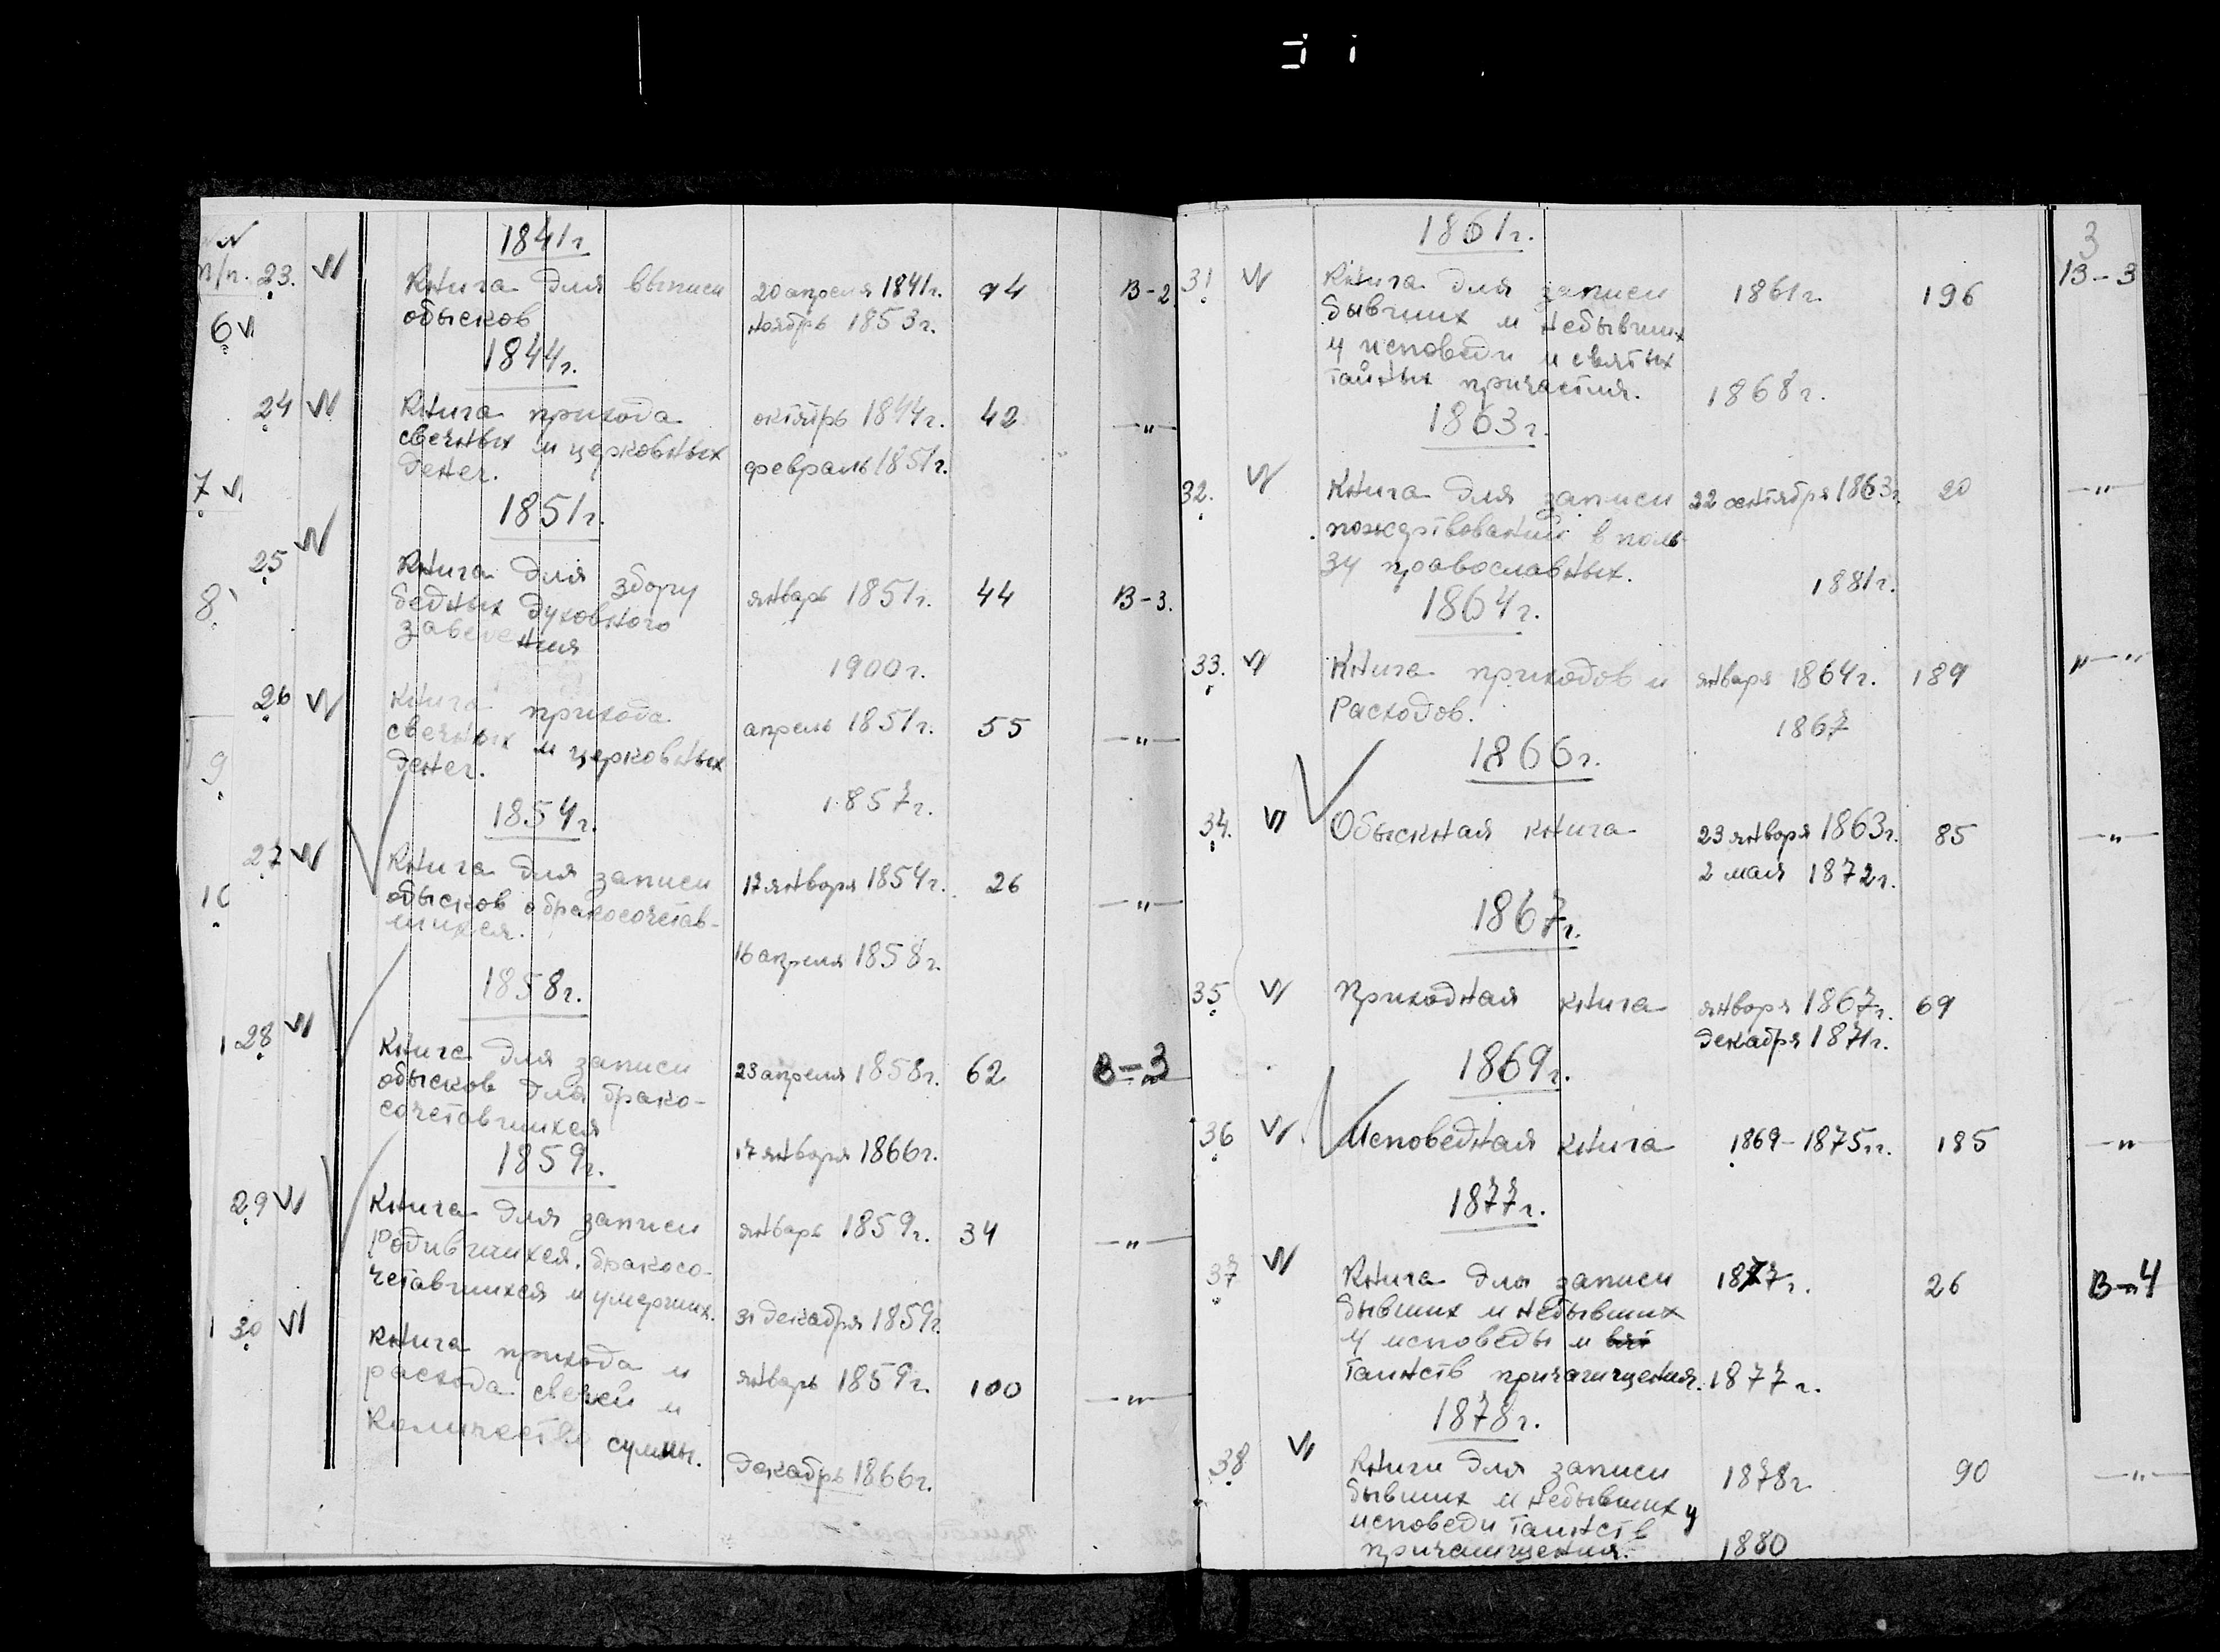 1841г.
п/п. 23. Книга для выписи 20 апреля 1841г. 94 В-2
обысков ноябрь 1853г.
6
1844г.
24 Книга прихода октябрь 1844г. 42 —"—
свечных и церковных
денег. февраль 1851г.
7
1851г.
25 Книга для збору январь 1851г. 44 В-3.
8
бедных духовного
заведения
1900г.
26 Книга прихода апрель 1851г. 55 —"—
свечных и церковных
денег.
9
1857г.
1854г.
27 Книга для записи 17 января 1854г. 26 —"—
10
обысков обракосочетав-
шихся.
16 апреля 1858г.
1858г.
28 Книга для записи 23 апреля 1858г. 62 В-3
обысков для брако-
сочетавшихся
17 января 1866г.
1859г.
29 Книга для записи январь 1859г. 34 —"—
родившихся. бракосо-
четавшихся и умерших. 31 декабря 1859г.
30 Книга прихода и январь 1859г. 100 —"—
расхода свечей и
количества суммы.
декабрь 1866г.
3
1861г.
31 Книга для записи 1861г. 196 В-3
бывших и небывших
у исповеди и святых
тайных причастия. 1868г.
1863г.
32. Книга для записи 22 октября 1863г. 20 —"—
пожертвований в поль-
зу православных. 1881г.
1864г.
33. Книга приходов и января 1864г. 189 "—"
Расходов. 1867
1866г.
34. Обыскная книга 23 января 1863г. 85 —"—
2 мая 1872г.
1867г.
35 Приходная книга января 1867г. 69
декабря 1871г.
1869г.
36 Исповедная книга 1869-1875г. 185 —"
1877г.
37 Книга для записи 1877г. 26 В-4
бывших и небывших
у исповеды и
таинств причащения. 1877г.
1878г.
38 Книги для записи 1878г. 90 —"—
бывших и небывших у
исповеди таинств
причащения. 1880